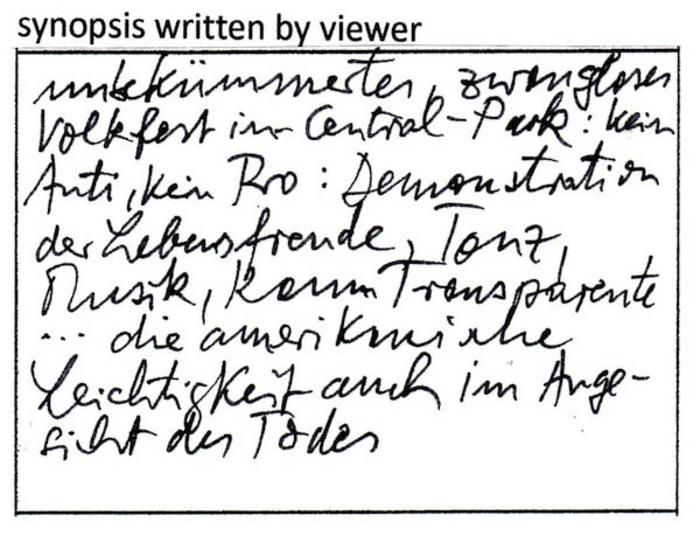 synopsis written by viewer
unbekümmertes, zwangloses
Volkfest im Central-Park: kein
Anti, kein Pro: Demonstration
der Lebensfreude, Tanz,
Musik, kaum Transparente
... die amerikanische
Leichtigkeit auch im Ange-
sicht des Todes